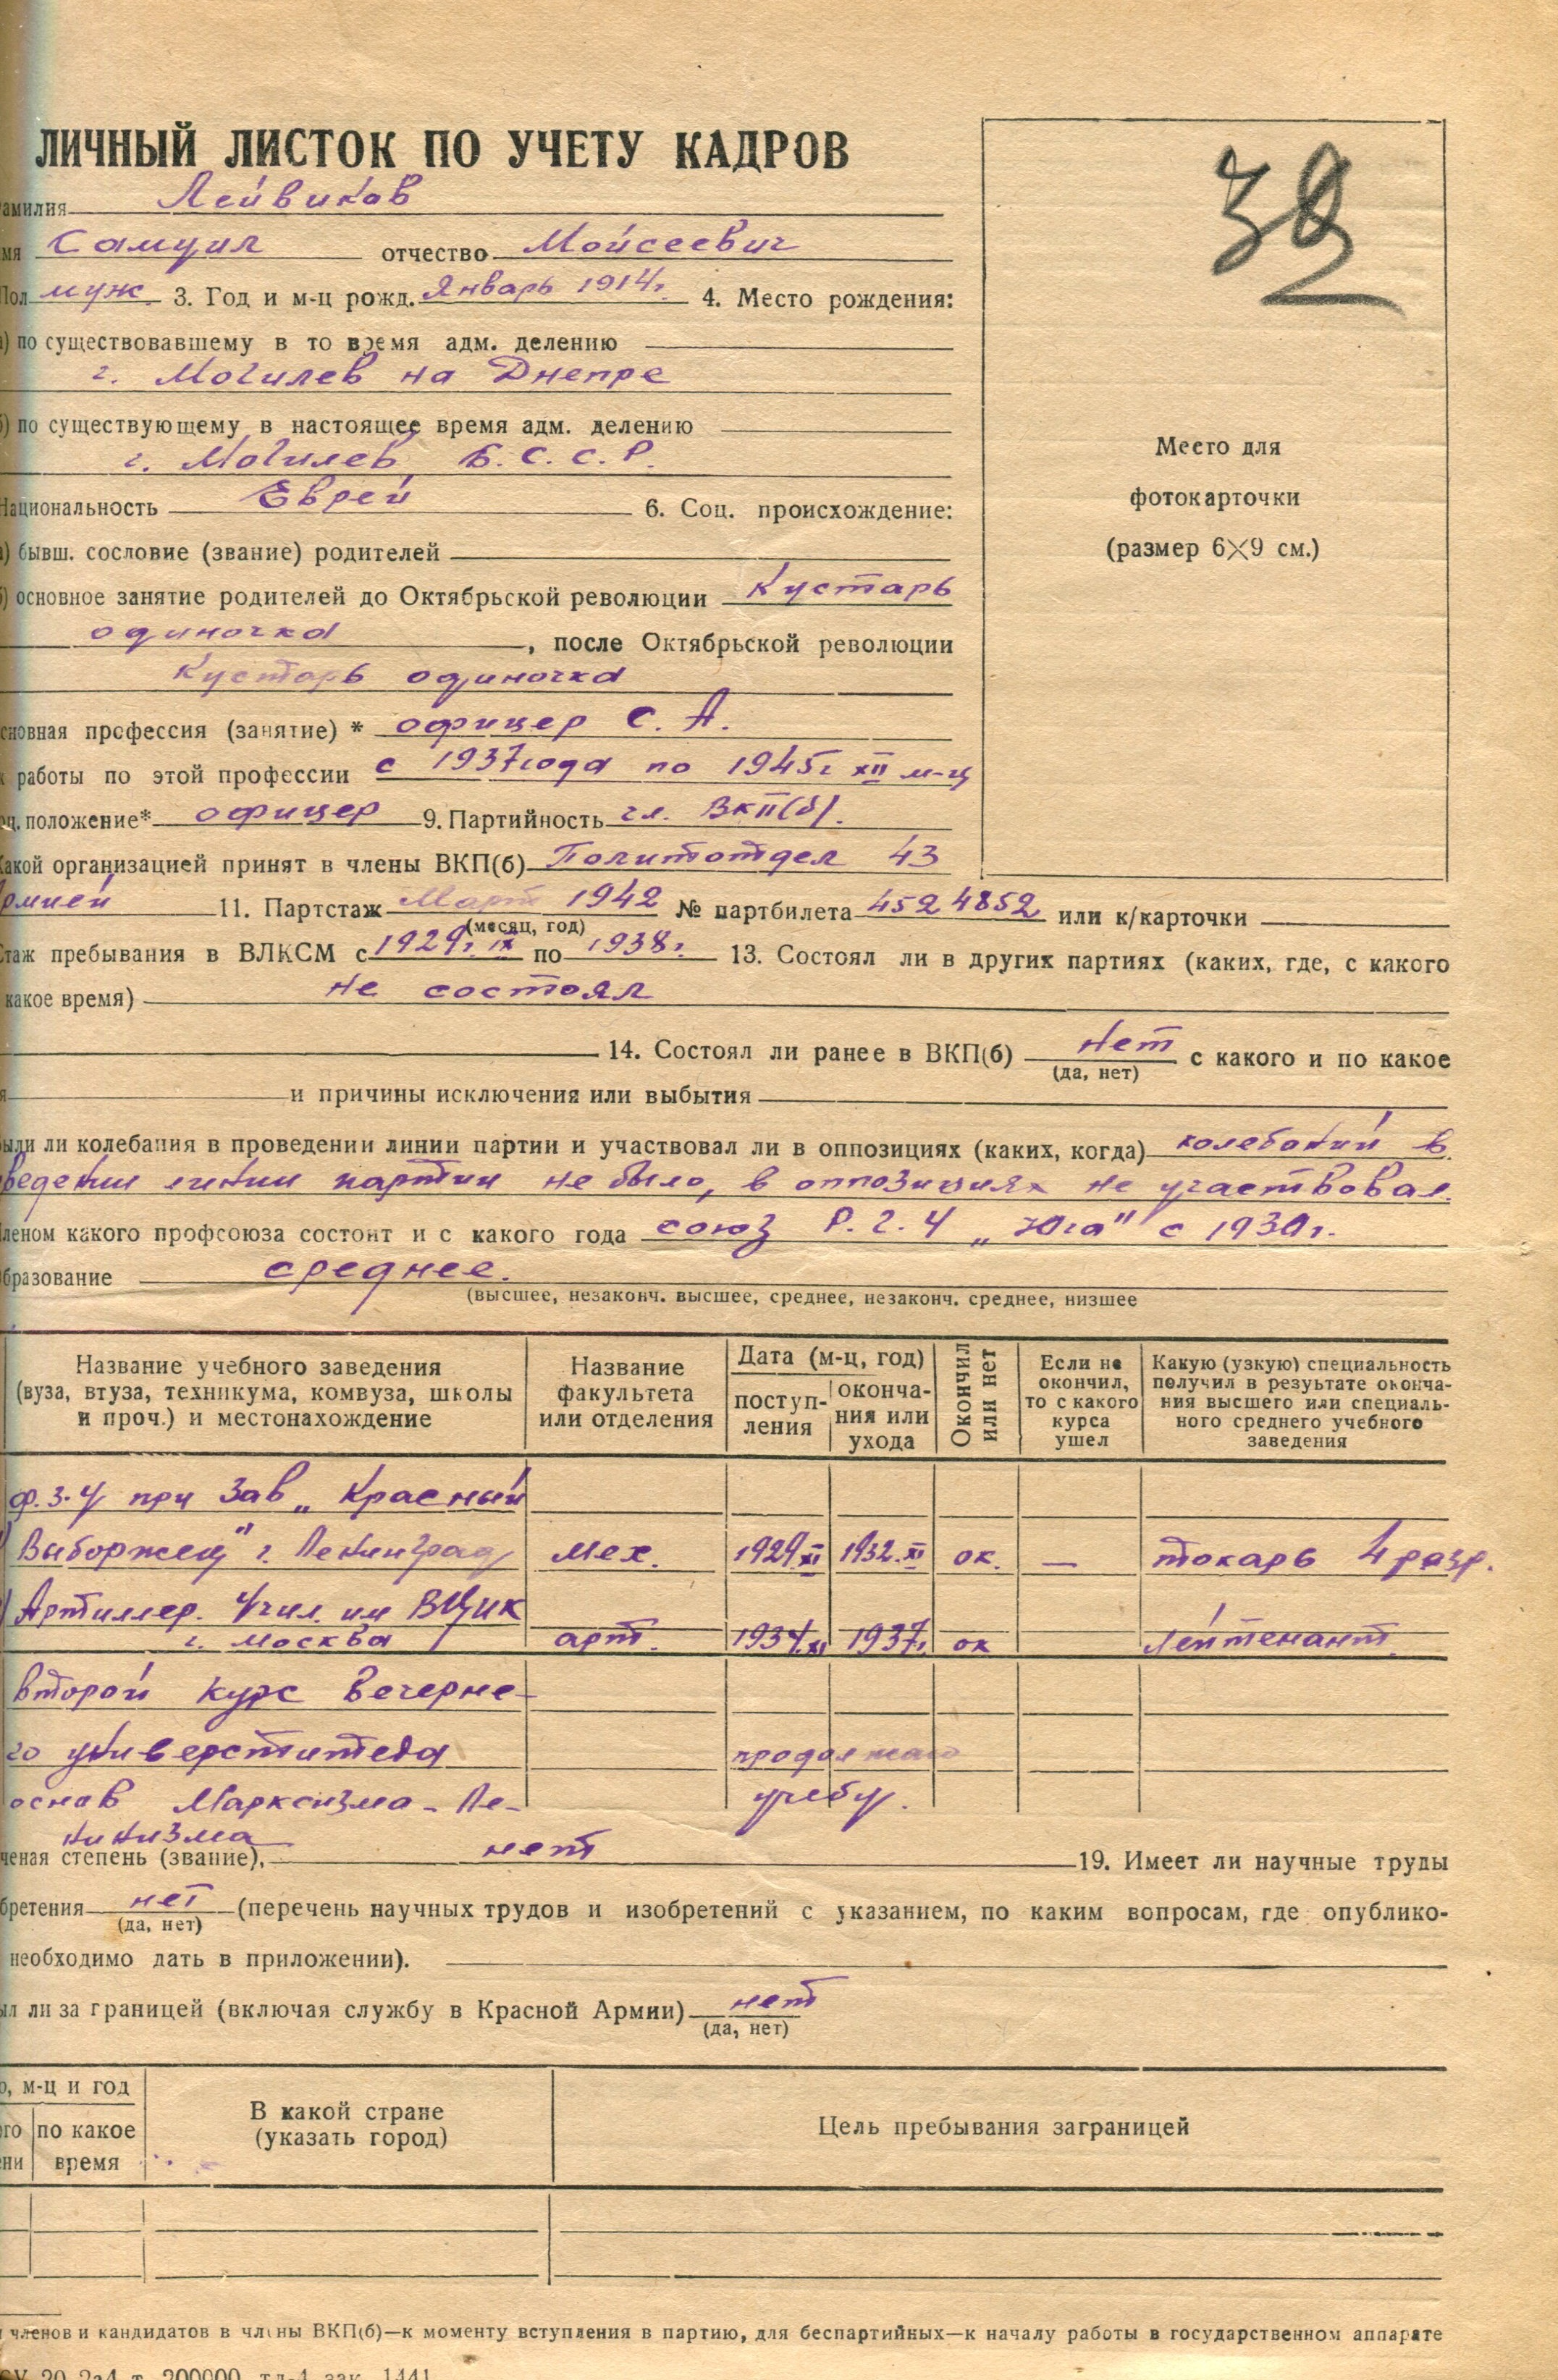 ЛИЧНЫЙ ЛИСТОК ПО УЧЕТУ КАДРОВ
39
амилия Лейвиков
мя Самуил отчество Мойсеевич
Пол муж 3. Год и м-ц рожд. Январь 1914г. 4. Место рождения:
) по существовавшему в то время адм. делению
г. Могилев на Днепре
) по существующему в настоящее время адм. делению
г. Могилев Б.С.С.Р.
Национальность Еврей 6. Соц. происхождение:
) бывш. сословие (звание) родителей
) основное занятие родителей до Октябрьской революции Кустарь
одиночка, после Октябрьской революции
Кустарь одиночка
сновная профессия (занятие) * офицер С. А.
работы по этой профессии с 1937 года по 1945г XII м-ц
положение* офицер 9. Партийность чл. ВКП(б).
Какой организацией принят в члены ВКП(б) Политотдел 43
Армией 11. Партстаж Март 1942 № партбилета 4524852 или к/карточки
(месяц, год)
таж пребывания в ВЛКСМ с 1929г. IX по 1938г. 13. Состоял ли в других партиях (каких, где, с какого
какое время) не состоял
14. Состоял ли ранее в ВКП(б) Нет с какого и по какое
(да, нет)
и причины исключения или выбытия
ыли ли колебания в проведении линии партии и участвовал ли в оппозициях (каких, когда) колебаний в
ведении линии партии не было, в оппозициях не участвовал.
леном какого профсоюза состоит и с какого года союз Р.Г.Ч „Юга" с 1930г.
бразование среднее.
(высшее, незаконч. высшее, среднее, незаконч. среднее, низшее
Название учебного заведения (вуза, втуза, техникума, комвуза, школы и проч.) и местонахождение
Название факультета или отделения
Дата (м-ц, год)
поступ-ления
оконча-ния или ухода
Окончил или нет
Если не окончил, то с какого курса ушел
Какую (узкую) специальность получил в резуьтате оконча-ния высшего или специаль-ного среднего учебного заведения
Ф.З.У при Зав „Красный
Выборжец" г. Ленинград мех. 1929.XI 1932.XI ок. — токарь 4 разр.
Артиллер. Учил. им ВЦИК
г. Москва арт. 1934.XI 1937г. ок Лейтенант
Второй курс вечерне-
го универститета продолжаю
основ Марксизма-Ле- учебу.
нинизма
ченая степень (звание), нет 19. Имеет ли научные труды
бретения нет (перечень научных трудов и изобретений с указанием, по каким вопросам, где опублико-
(да, нет)
необходимо дать в приложении).
ыл ли за границей (включая службу в Красной Армии) нет
(да, нет)
Место для
фотокарточки
(размер 6×9 см.)
о, м-ц и год
го
ни
по какое время
В какой стране (указать город)
Цель пребывания заграницей
членов и кандидатов в члены ВКП(б)—к моменту вступления в партию, для беспартийных—к началу работы в государственном аппарате